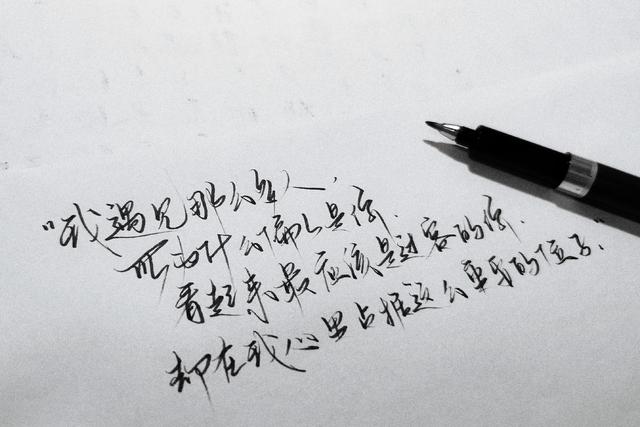 “我遇见那么多人，
可为什么偏偏是你.
看起来最应该是过客的你.
却在我心里占据这么重要的位子.”